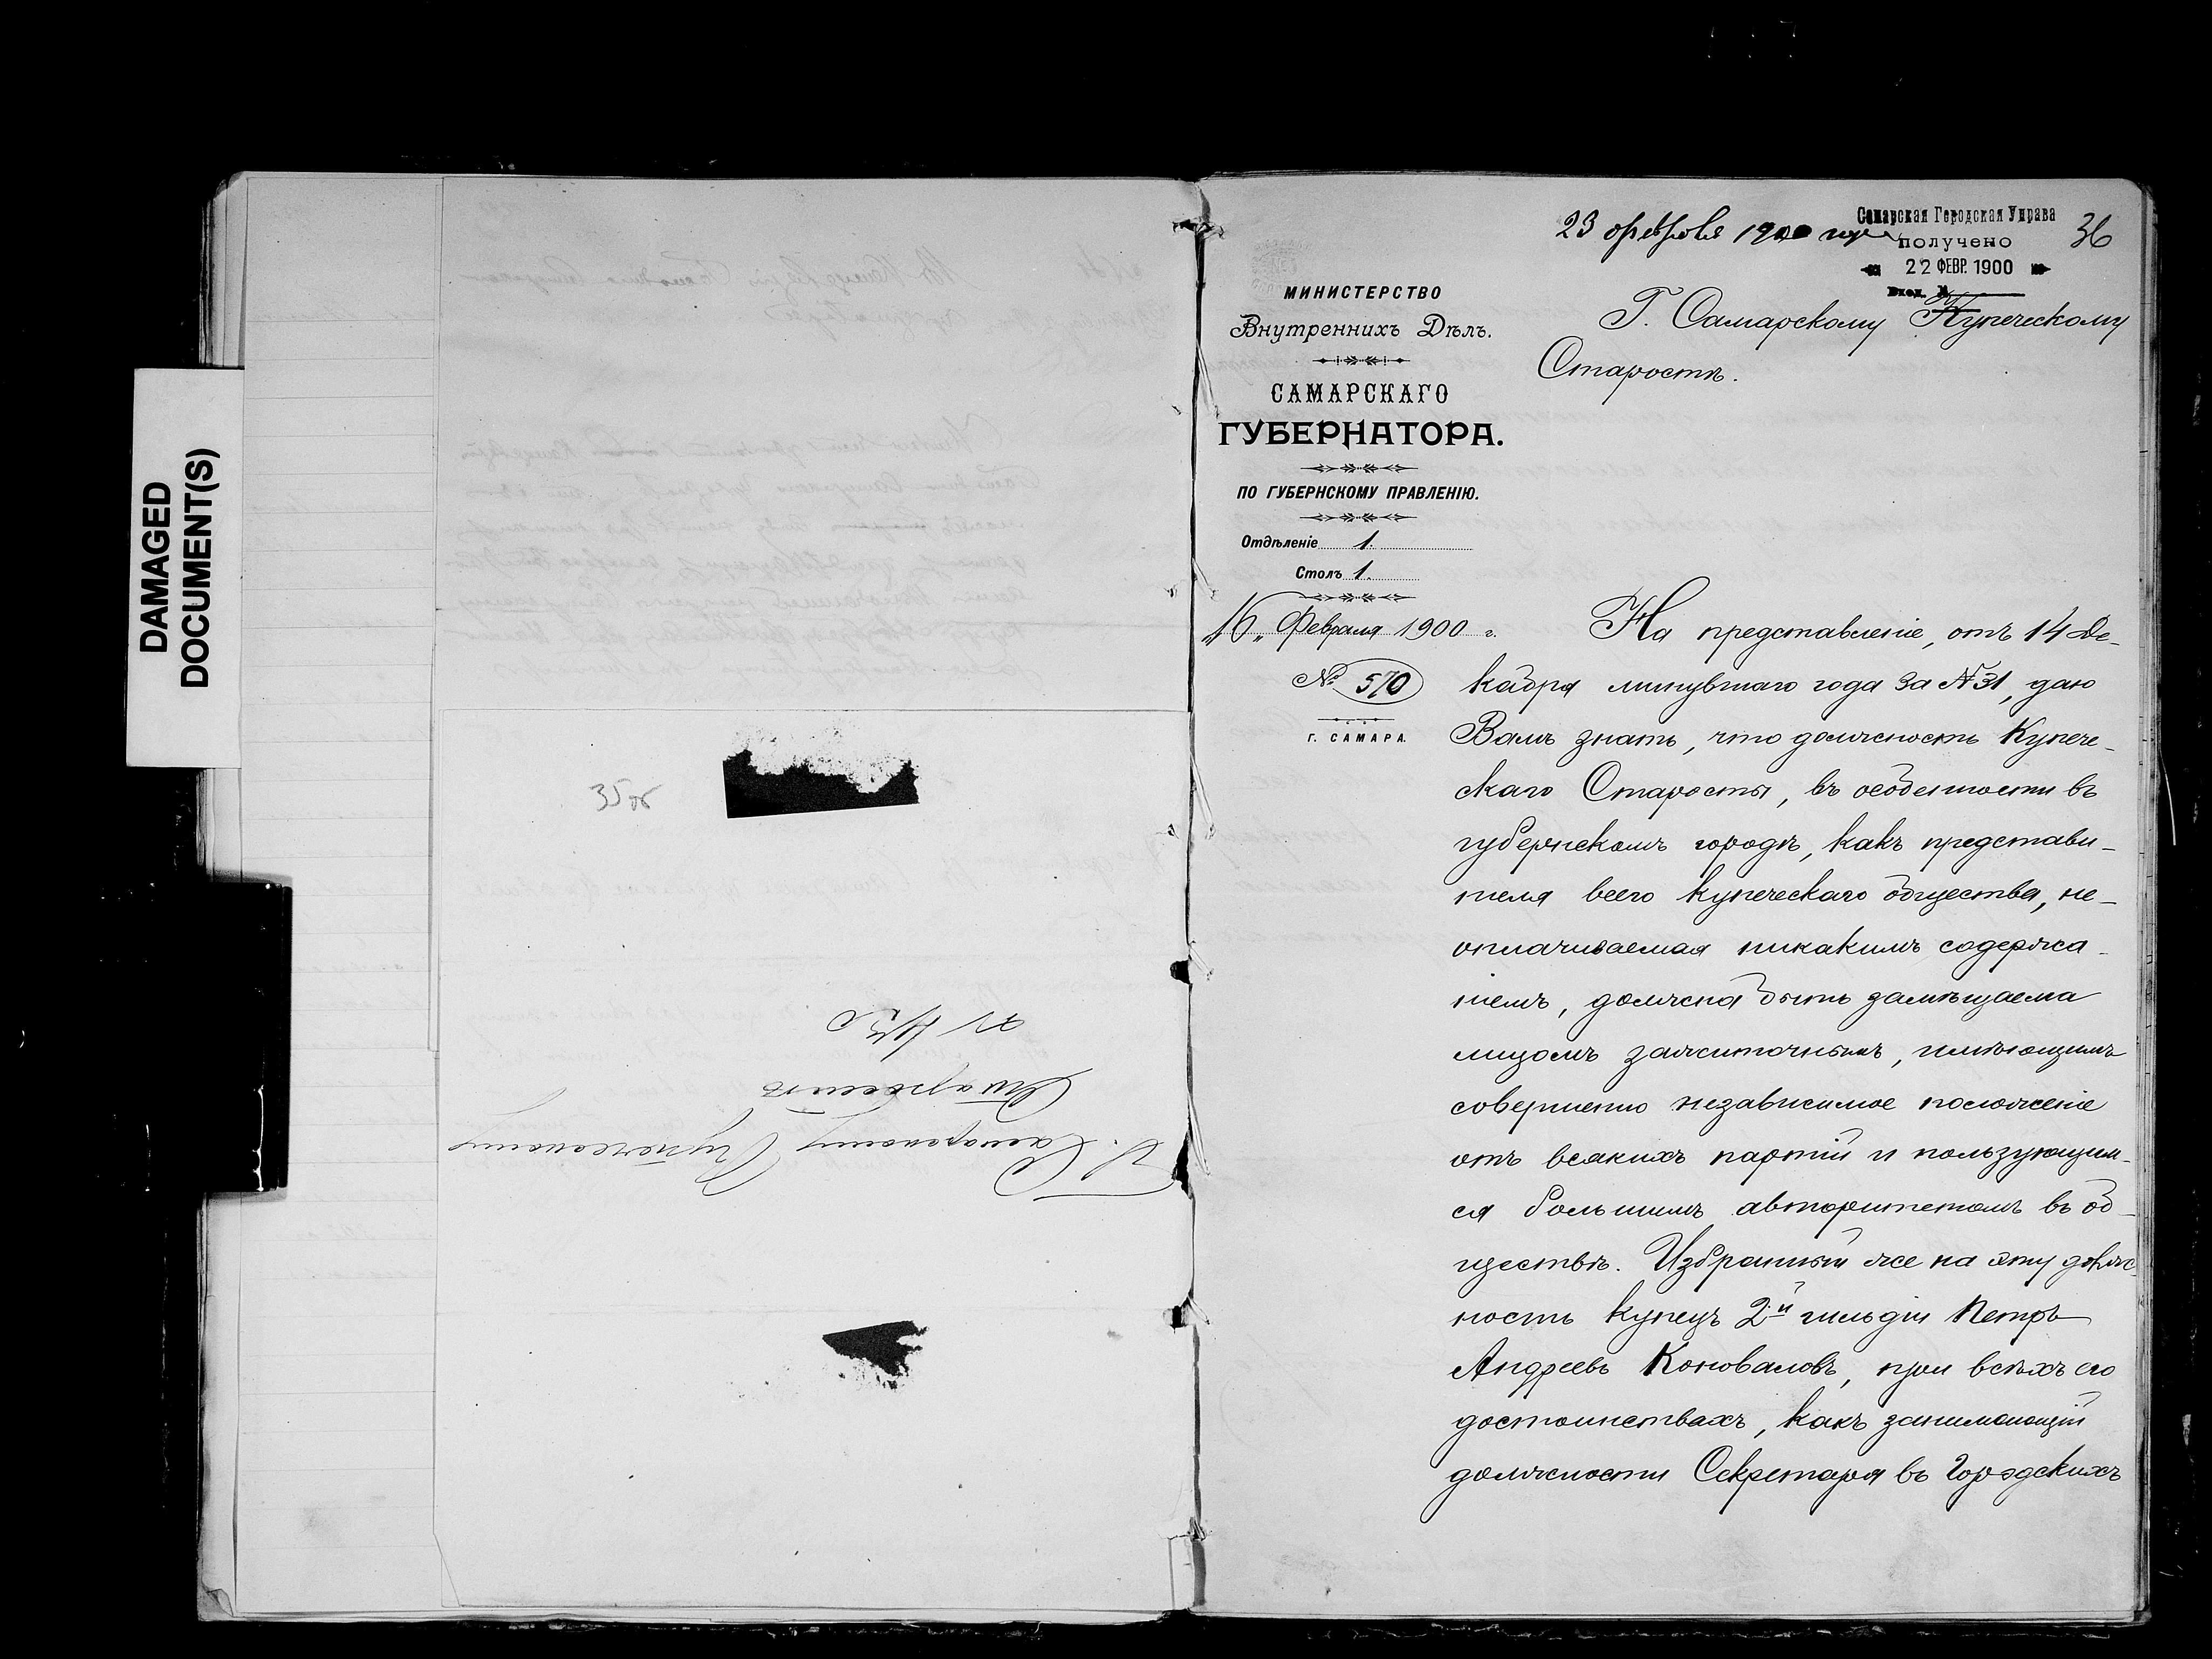 DAMAGED
DOCUMENT(S)
35 об
Г. Самарскому Купеческому
Старостѣ
23 февраля 1900 года
Самарская Городская Управа
получено
22 ФЕВР. 1900
Вход. №
36
МИНИСТЕРСТВО
Внутреннихъ Дѣлъ.
САМАРСКАГО
ГУБЕРНАТОРА.
ПО ГУБЕРНСКОМУ ПРАВЛЕНІЮ.
Отдѣленіе 1.
Столъ 1.
„16„ Февраля 1900 г.
№ 570
Г. САМАРА.
Г. Самарскому Купеческому
Старостѣ.
На представленіе, отъ 14 Де-
кабря минувшаго года за № 31, даю
Вамъ знать, что должность Купече-
скаго Старосты, въ особенности въ
губернскомъ городѣ, какъ представи-
теля всего купеческаго общества, не-
оплачиваемая никакимъ содержа-
ніемъ, должна быть замѣщаема
лицомъ зажиточнымъ, имѣющимъ
совершенно независимое положеніе
отъ всякихъ партій и пользующим-
ся большимъ авторитетомъ въ об-
ществѣ. Избранный же на эту долж-
ность купецъ 2й гильдіи Петръ
Андреевъ Коноваловъ, при всѣхъ его
достоинствахъ, какъ занимающій
должности Секретаря въ Городскихъ